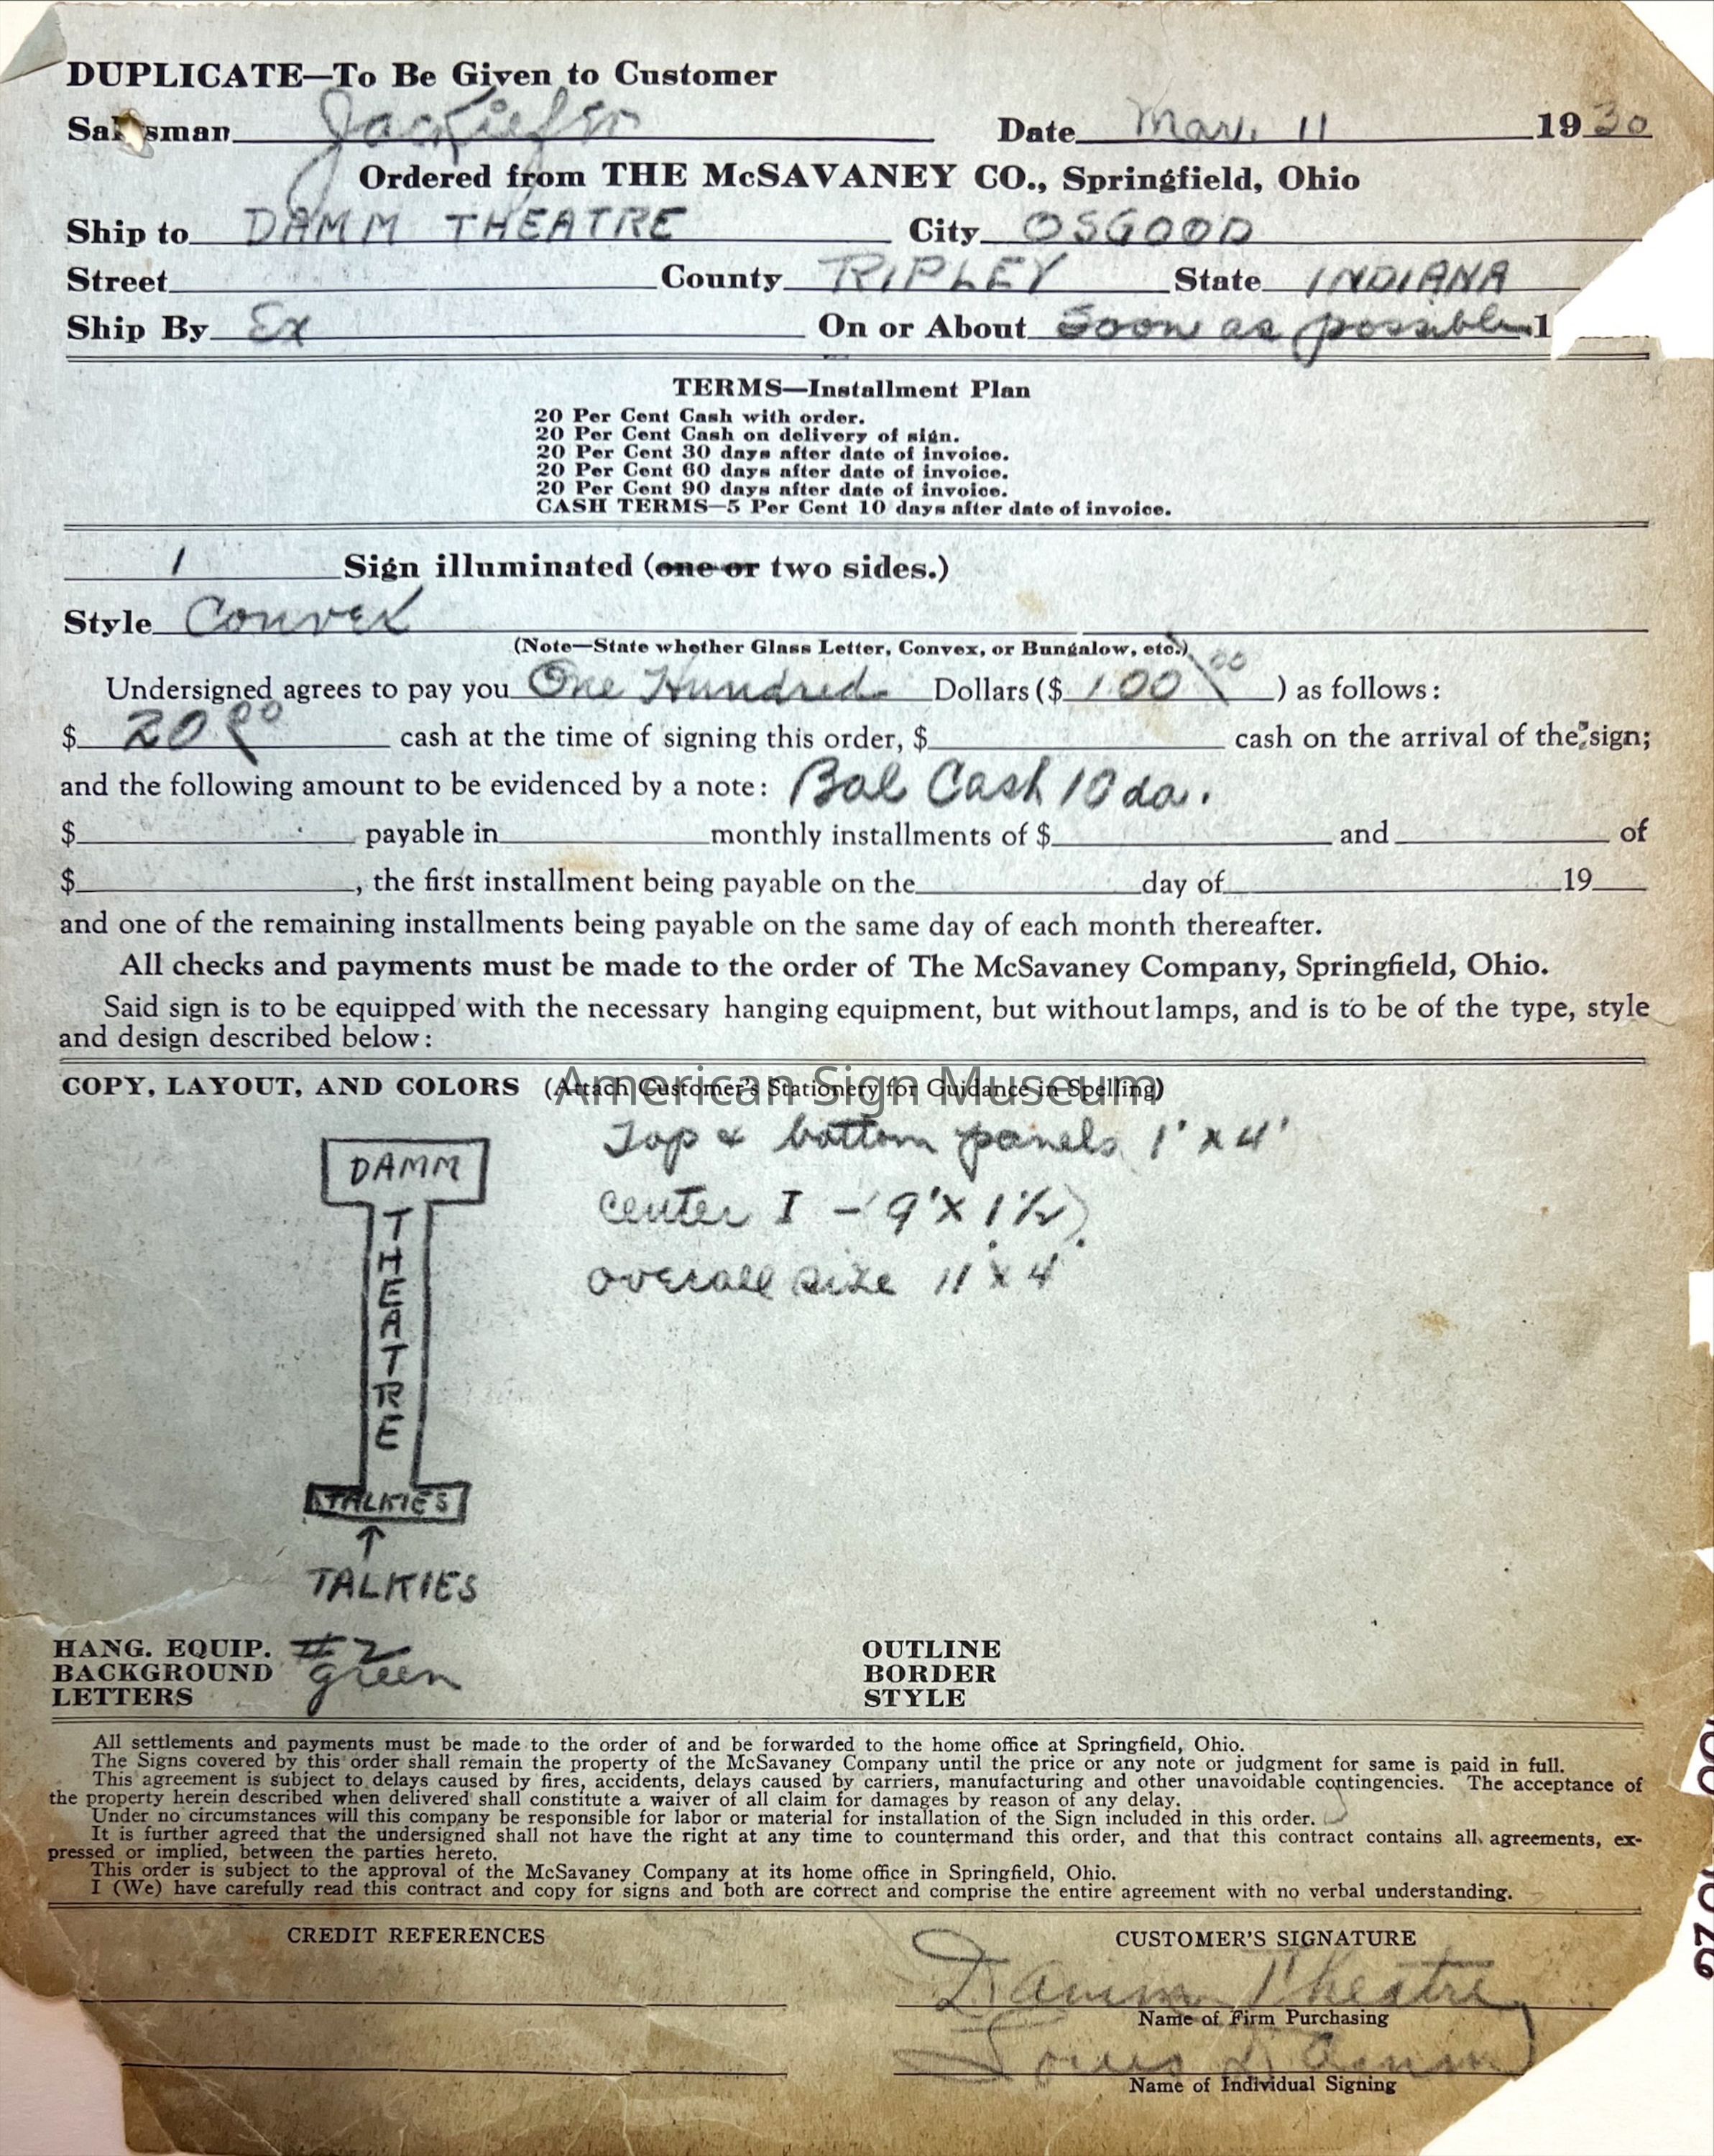 DUPLICATE—To Be Given to Customer
Salesman Date Mar. 11 1930
Ordered from THE McSAVANEY CO., Springfield, Ohio
Ship to DAMM THEATRE City OSGOOD
Street County RIPLEY State INDIANA
Ship By Ex On or About Soon as possible 1
TERMS—Installment Plan
20 Per Cent Cash with order.
20 Per Cent Cash on delivery of sign.
20 Per Cent 30 days after date of invoice.
20 Per Cent 60 days after date of invoice.
20 Per Cent 90 days after date of invoice.
CASH TERMS—5 Per Cent 10 days after date of invoice.
1 Sign illuminated (one or two sides.)
Style Convex
(Note—State whether Glass Letter, Convex, or Bungalow, etc.)
Undersigned agrees to pay you One Hundred Dollars ($ 100 00 ) as follows:
$ 20 00 cash at the time of signing this order, $ cash on the arrival of the sign;
and the following amount to be evidenced by a note: Bal Cash 10 da.
$ payable in monthly installments of $ and of
$ , the first installment being payable on the day of 19
and one of the remaining installments being payable on the same day of each month thereafter.
All checks and payments must be made to the order of The McSavaney Company, Springfield, Ohio.
Said sign is to be equipped with the necessary hanging equipment, but without lamps, and is to be of the type, style
and design described below:
COPY, LAYOUT, AND COLORS (Attach Customer's Stationery for Guidance in Spelling)
American Sign Museum
Top & bottom panels 1' x 4'
center I - 9' x 1 1/2
overall size 11' x 4'
DAMM
THEATRE
TALKIES
TALKIES
HANG. EQUIP. #2
BACKGROUND green
LETTERS
OUTLINE
BORDER
STYLE
All settlements and payments must be made to the order of and be forwarded to the home office at Springfield, Ohio.
The Signs covered by this order shall remain the property of the McSavaney Company until the price or any note or judgment for same is paid in full.
This agreement is subject to delays caused by fires, accidents, delays caused by carriers, manufacturing and other unavoidable contingencies. The acceptance of
the property herein described when delivered shall constitute a waiver of all claim for damages by reason of any delay.
Under no circumstances will this company be responsible for labor or material for installation of the Sign included in this order.
It is further agreed that the undersigned shall not have the right at any time to countermand this order, and that this contract contains all agreements, ex-
pressed or implied, between the parties hereto.
This order is subject to the approval of the McSavaney Company at its home office in Springfield, Ohio.
I (We) have carefully read this contract and copy for signs and both are correct and comprise the entire agreement with no verbal understanding.
CREDIT REFERENCES
CUSTOMER'S SIGNATURE
Damm Theatre
Name of Firm Purchasing
Louis Damm
Name of Individual Signing